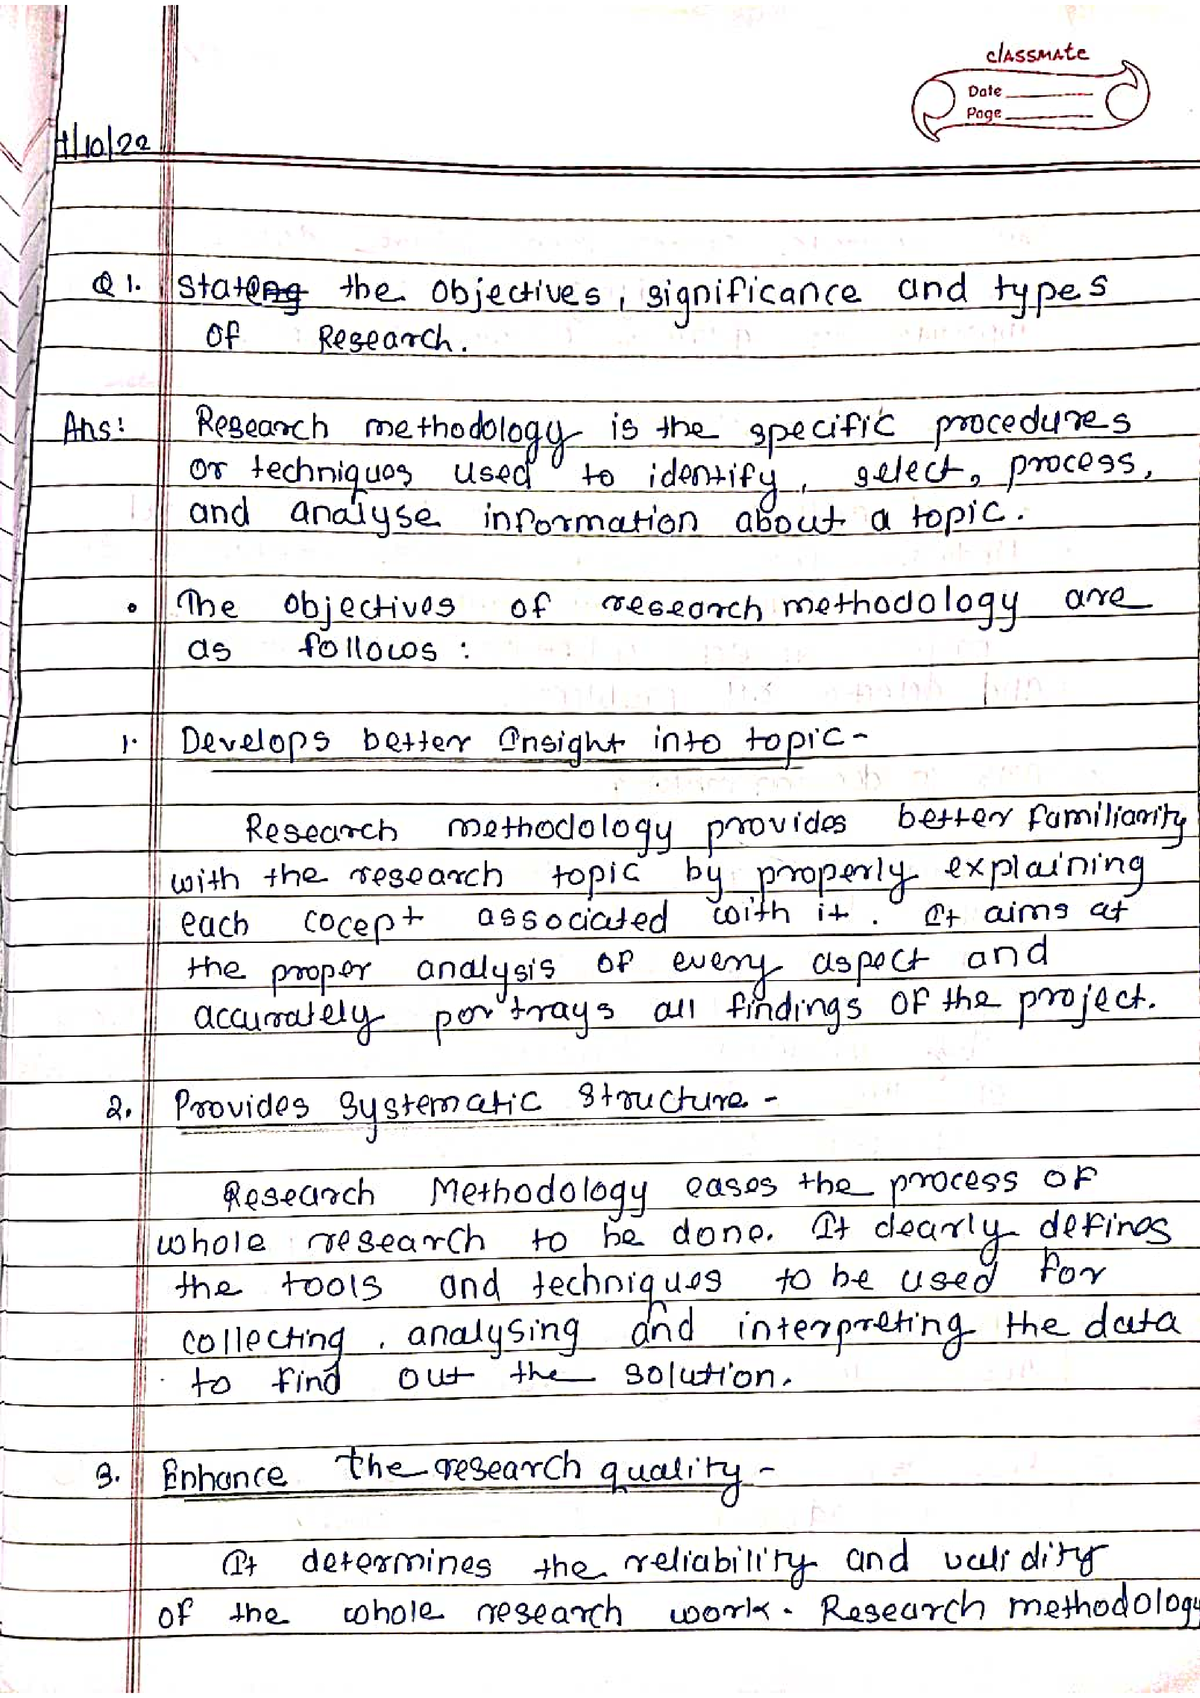 classmate
Date
Page
/10/22
Q 1. State the objectives, significance and types
of Research.
Ans: Research methodology is the specific procedures
or techniques used to identify, select, process,
and analyse information about a topic.
• The objectives of research methodology are
as follows:
1. Develops better Insight into topic-
Research methodology provides better familiarity
with the research topic by properly explaining
each cocept associated with it. It aims at
the proper analysis of every aspect and
accurately portrays all findings of the project.
2. Provides Systematic Structure-
Research Methodology eases the process of
whole research to be done. It clearly defines
the tools and techniques to be used for
collecting, analysing and interpreting the data
to find out the solution.
3. Enhance the research quality-
It determines the reliability and validity
of the whole research work. Research methodology